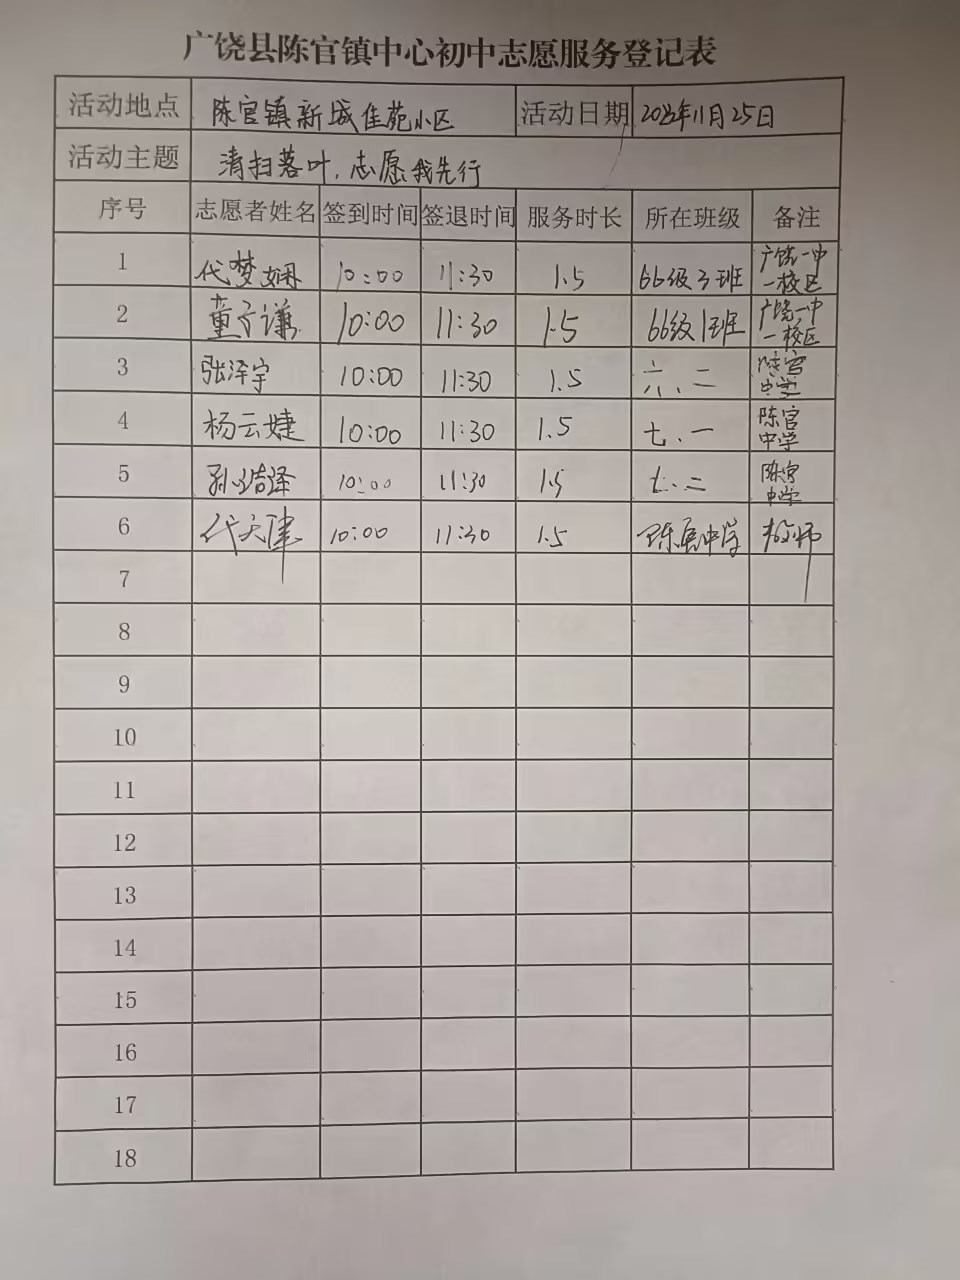 广饶县陈官镇中心初中志愿服务登记表
活动地点 陈官镇新城佳苑小区 活动日期 11月25日
活动主题 清扫落叶，志愿我先行
序号 志愿者姓名 签到时间 签退时间 服务时长 所在班级 备注
1 代梦娴 10:00 11:30 1.5 66级3班 广饶一中一校区
2 董子谦 10:00 11:30 1.5 66级1班 广饶一中一校区
3 张泽宇 10:00 11:30 1.5 六、二 陈官中学
4 杨云婕 10:00 11:30 1.5 七、一 陈官中学
5 孙浩泽 10:00 11:30 1.5 七、二 陈官中学
6 代天津 10:00 11:30 1.5 陈官中学 教师
7
8
9
10
11
12
13
14
15
16
17
18